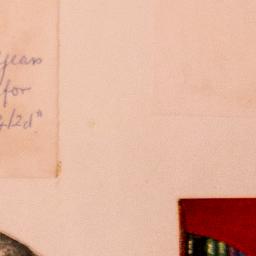 Years
for
4/2d"